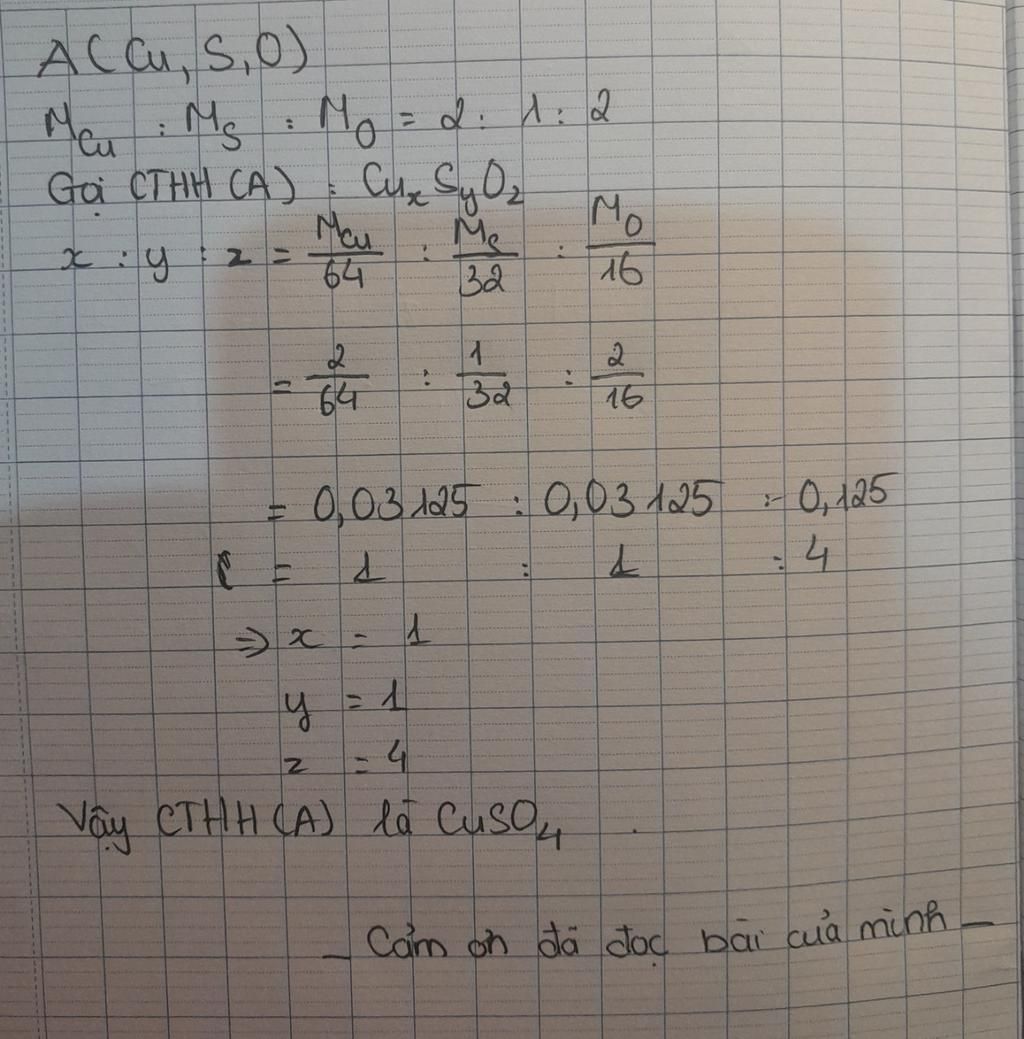 A (Cu, S, O)
M_Cu : M_S : M_O = 2 : 1 : 2
Gọi CTHH (A) : Cu_xS_yO_z
x : y : z = M_Cu/64 : M_S/32 : M_O/16
= 2/64 : 1/32 : 2/16
= 0,03125 : 0,03125 : 0,125
= 1 : 1 : 4
=> x = 1
y = 1
z = 4
Vậy CTHH (A) là CuSO₄ .
_ Cảm ơn đã đọc bài của mình _